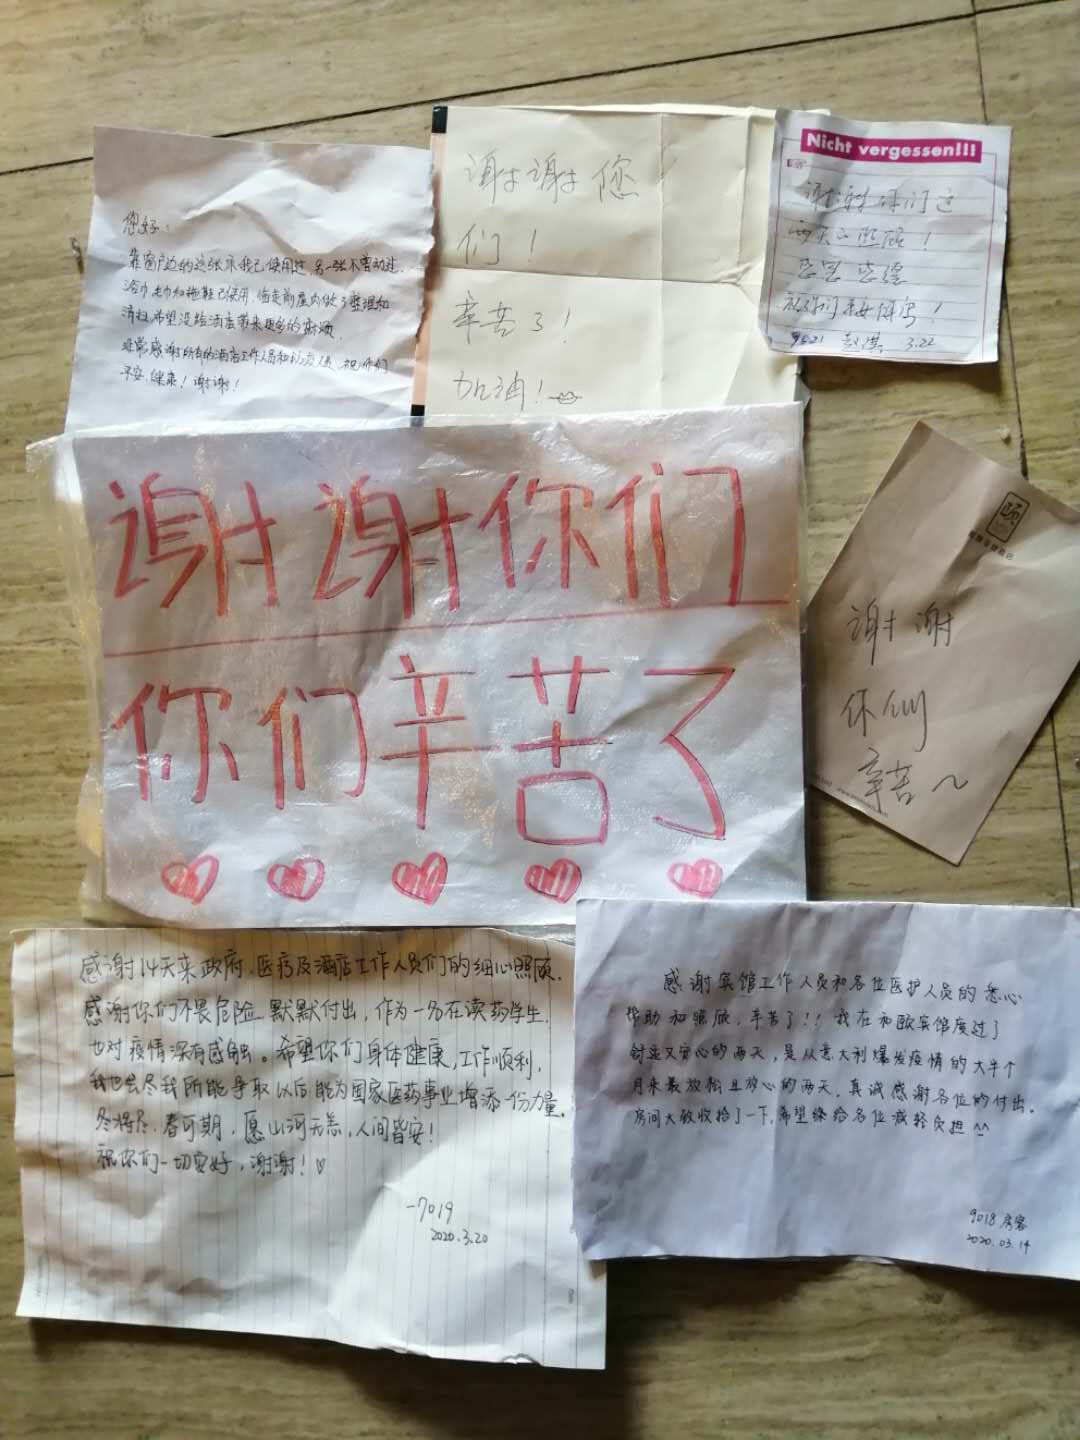 您好：
靠窗户边的这张床我已使用过，另一张不曾动过.
浴巾毛巾和拖鞋已使用，临走前屋内做了整理和
清扫，希望没给酒店带来更多的麻烦.
非常感谢所有的酒店工作人员和 祝你们
平安、健康！谢谢！
谢谢您
们！
辛苦了！
加油！
Nicht vergessen!!!
谢谢你们这
两天的照顾！
祝你们平安健康！
9021 3.22
谢谢你们
你们辛苦了
谢谢
你们
辛苦～
感谢14天来政府、医疗及酒店工作人员们的细心照顾.
感谢你们不畏危险 默默付出，作为一名在读药学生.
也对疫情深有感触。希望你们身体健康，工作顺利，
我也会尽我所能争取以后能为国家医药事业增添一份力量.
冬将尽，春可期，愿山河无恙，人间皆安！
祝你们一切安好，谢谢！♡
-7019
2020.3.20
感谢宾馆工作人员和各位医护人员的悉心
帮助和照顾，辛苦了!! 我在和欧宾馆度过了
舒适又安心的两天，是从意大利爆发疫情的大半个
月来最放松且放心的两天. 真诚感谢各位的付出.
房间大致收拾了一下，希望能给各位减轻负担 ^^
9018房客
2020.03.14